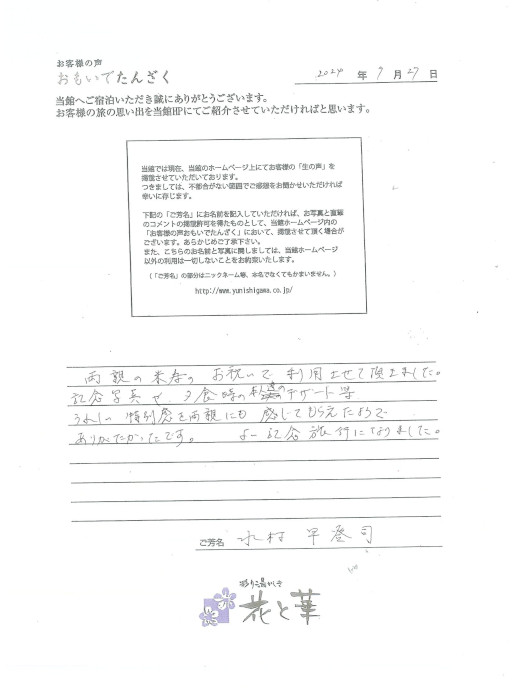 お客様の声
おもいでたんざく
2024 年 7 月 27 日
当館へご宿泊いただき誠にありがとうございます。
お客様の旅の思い出を当館HPにてご紹介させていただければと思います。
当館では現在、当館のホームページ上にてお客様の「生の声」を
掲載させていただいております。
つきましては、不都合がない範囲でご感想をお聞かせいただければ
幸いに存じます。
下記の「ご芳名」にお名前を記入していただければ、お写真と直筆
のコメントの掲載許可を得たものとして、当館ホームページ内の
「お客様の声おもいでたんざく」において、掲載させて頂く場合が
ございます。あらかじめご了承下さい。
また、こちらのお名前と写真に関しましては、当館ホームページ
以外の利用は一切しないことをお約束いたします。
（「ご芳名」の部分はニックネーム等、本名でなくてもかまいません。）
http://www.yunishigawa.co.jp/
両親の米寿の お祝いで 利用させて頂きました。
記念写真や、夕食時の デザート等
うれしい 特別感を両親にも 感じてもらえたようで
ありがたかったです。 よい記念旅行になりました。
ご芳名 水村 早登司
彩り湯かしき
花と華